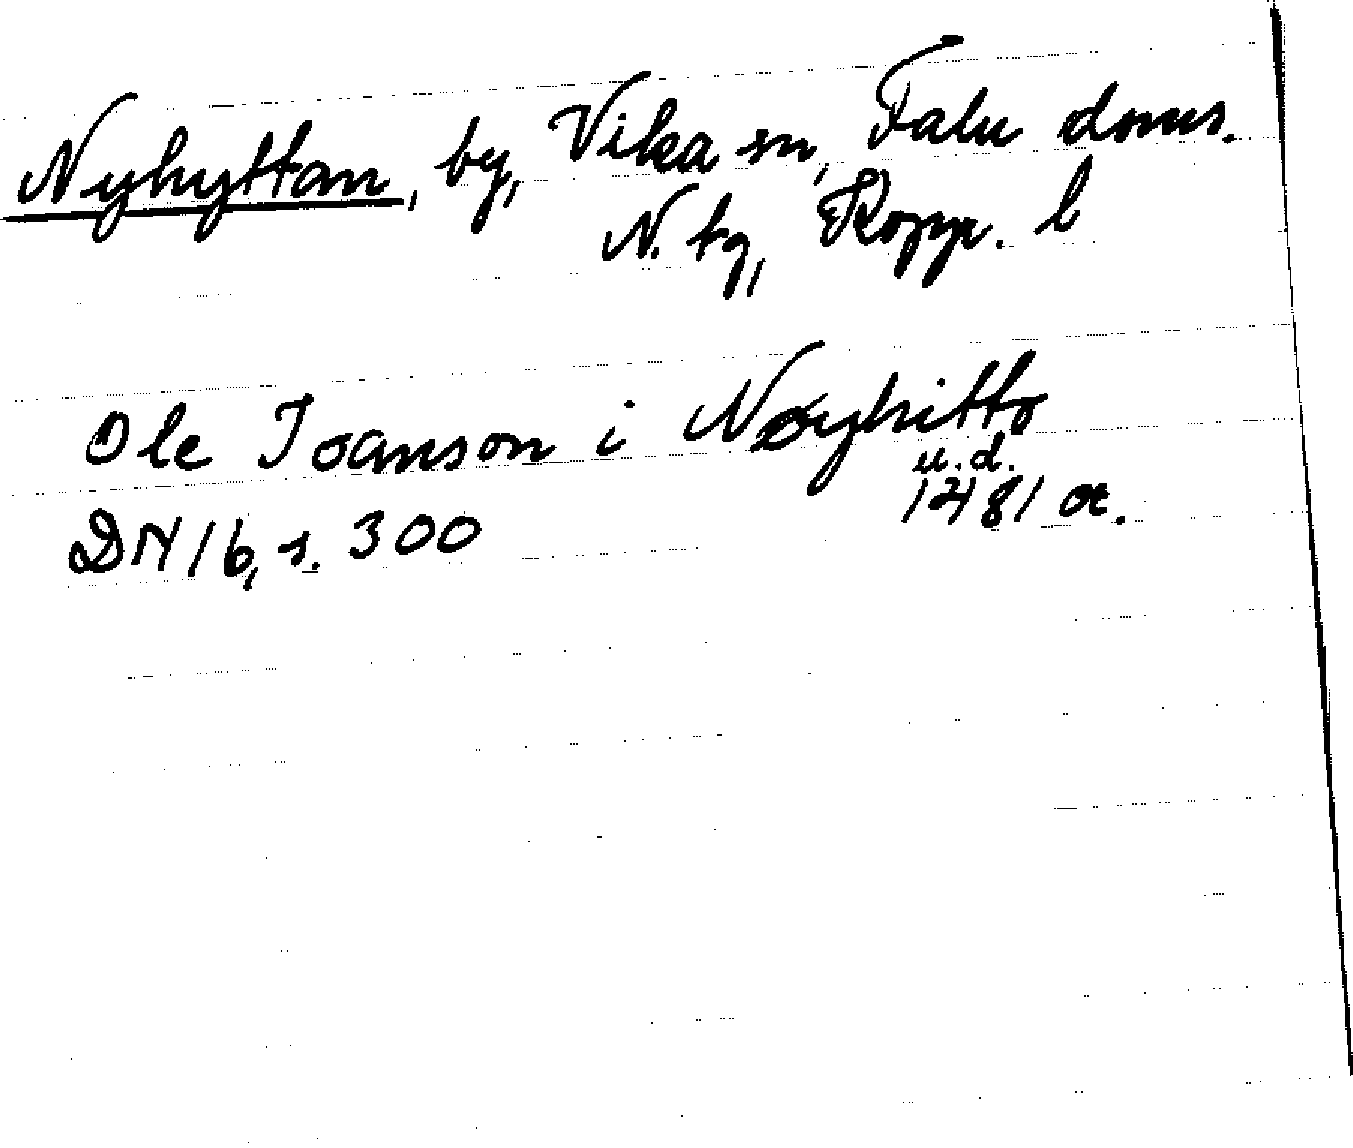 Nyhyttan, by, Vika sn, Falu doms.
N. tg, Kopp. l
Ole Joanson i Nøyhitto
u.d.
1481 or.
DN 16, s. 300